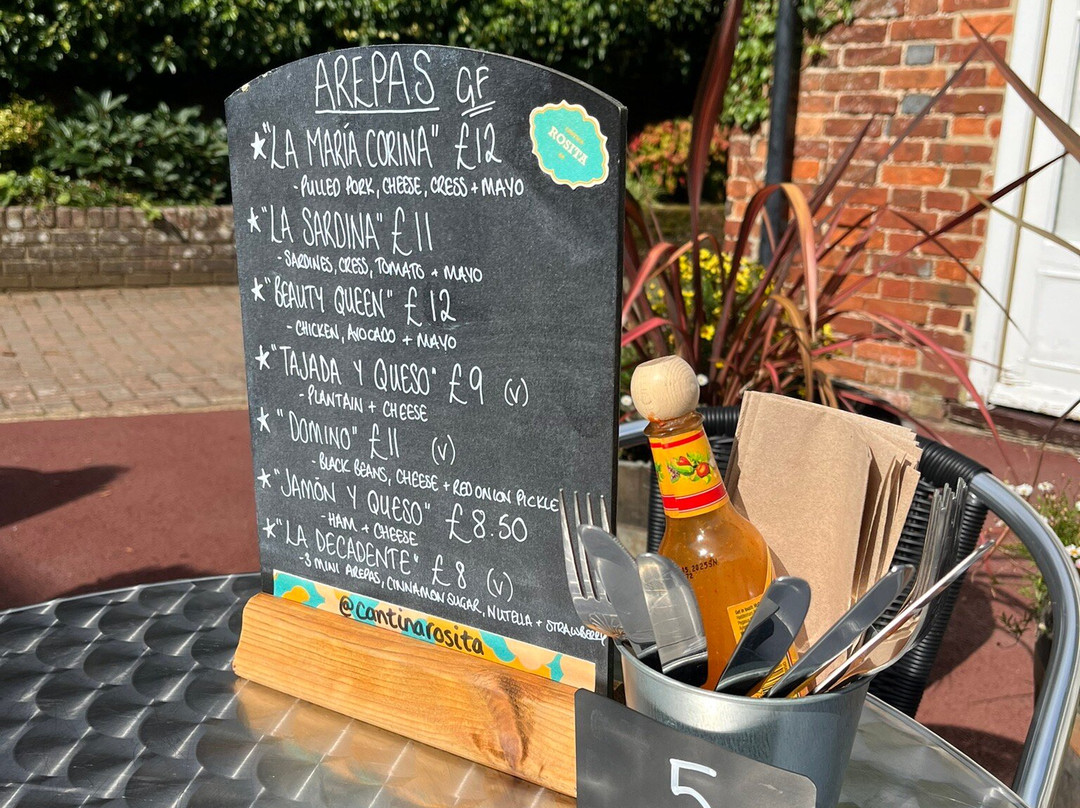 AREPAS GF
"LA MARÍA CORINA" £12
- PULLED PORK, CHEESE, CRESS + MAYO
"LA SARDINA" £11
- SARDINES, CRESS, TOMATO + MAYO
"BEAUTY QUEEN" £12
- CHICKEN, AVOCADO + MAYO
"TAJADA Y QUESO" £9 (V)
- PLANTAIN + CHEESE
"DOMINO" £11 (V)
- BLACK BEANS, CHEESE + RED ONION PICKLE
"JAMÓN Y QUESO" £8.50
- HAM + CHEESE
"LA DECADENTE" £8 (V)
- 3 MINI AREPAS, CINNAMON SUGAR, NUTELLA + STRAWBERRY
@cantinarosita
ROSITA
5